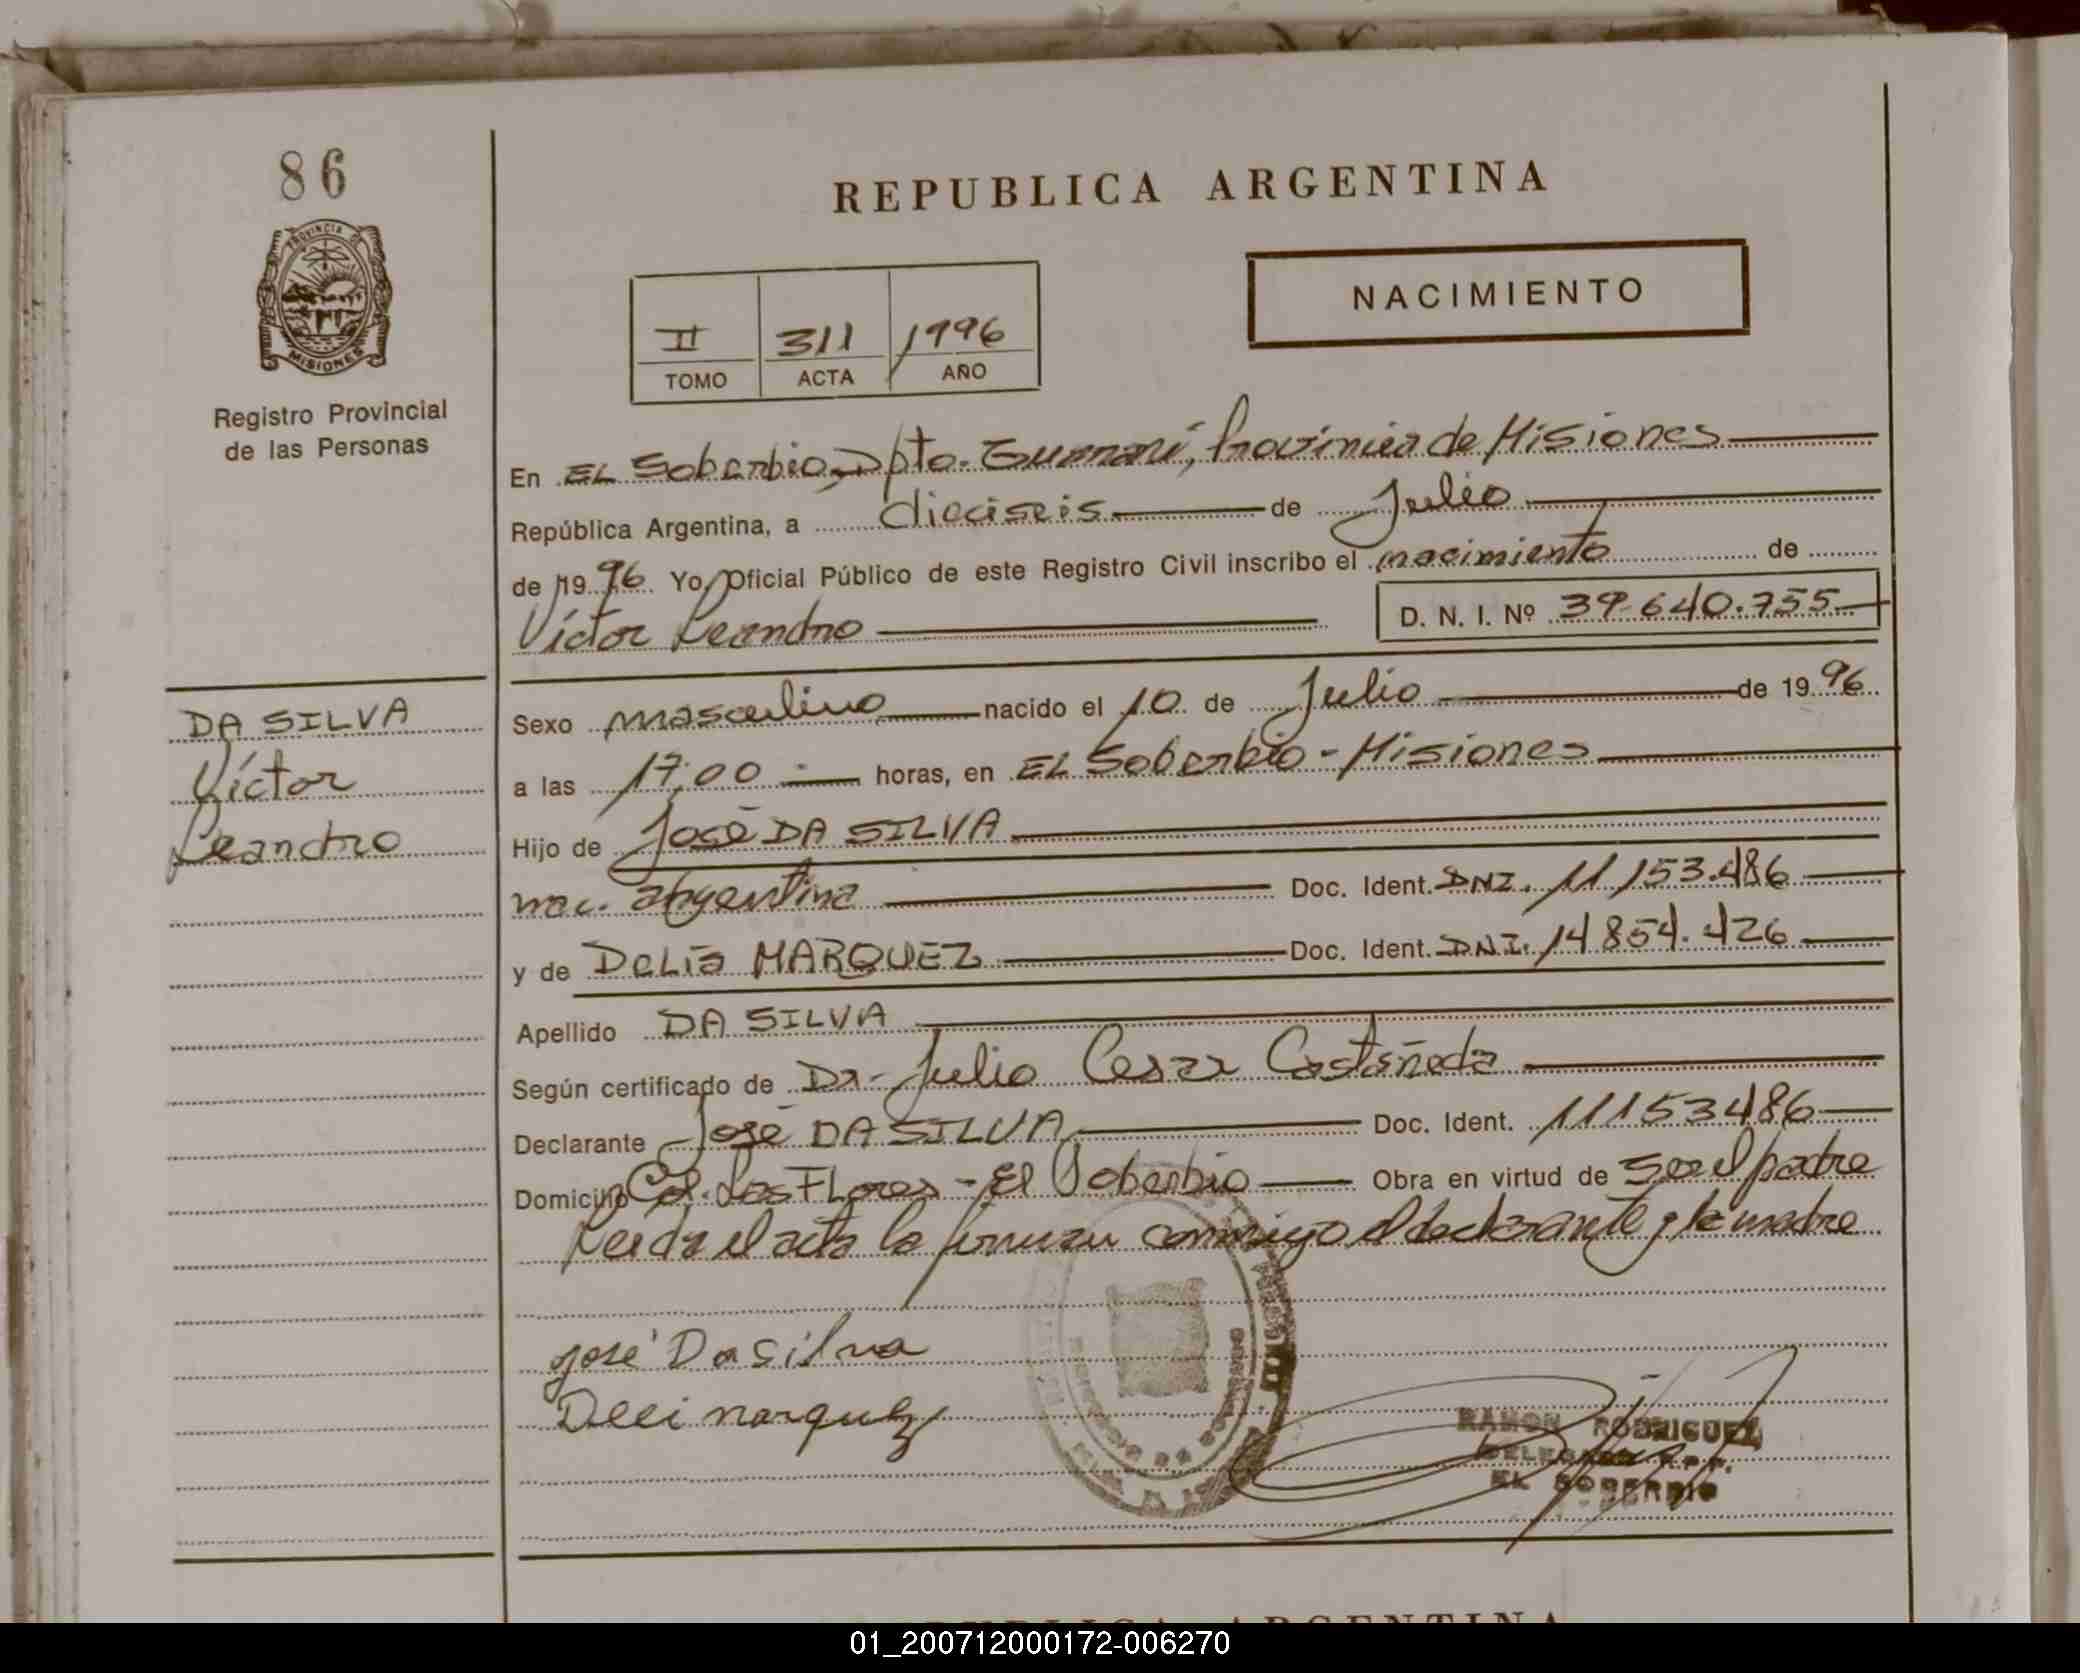 86
PROVINCIA DE
MISIONES
Registro Provincial
de las Personas
REPUBLICA ARGENTINA
NACIMIENTO
II 311 1996
TOMO ACTA AÑO
En EL Soberbio, Dpto. Guaraní, Provincia de Misiones
República Argentina, a dieciseis de Julio
de 1996 Yo, Oficial Público de este Registro Civil inscribo el nacimiento de
Víctor Leandro D. N. I. Nº 39.640.755
DA SILVA
Víctor
Leandro
Sexo masculino nacido el 10 de Julio de 1996
a las 17,00 horas, en EL Soberbio - Misiones
Hijo de José DA SILVA
nac. argentina Doc. Ident. DNI. 11 153.486
y de Delia MARQUEZ Doc. Ident. DNI. 14 854.426
Apellido DA SILVA
Según certificado de Dr. Julio Cesar Castañeda
Declarante José DA SILVA Doc. Ident. 11153486
Domicilio Col. Las Flores - El Soberbio Obra en virtud de ser el padre
Leida el acta la firman conmigo el declarante y la madre
José Da silva
Deli marquez
RAMON RODRIGUEZ
EL SOBERBIO
REPUBLICA ARGENTINA
01_200712000172-006270